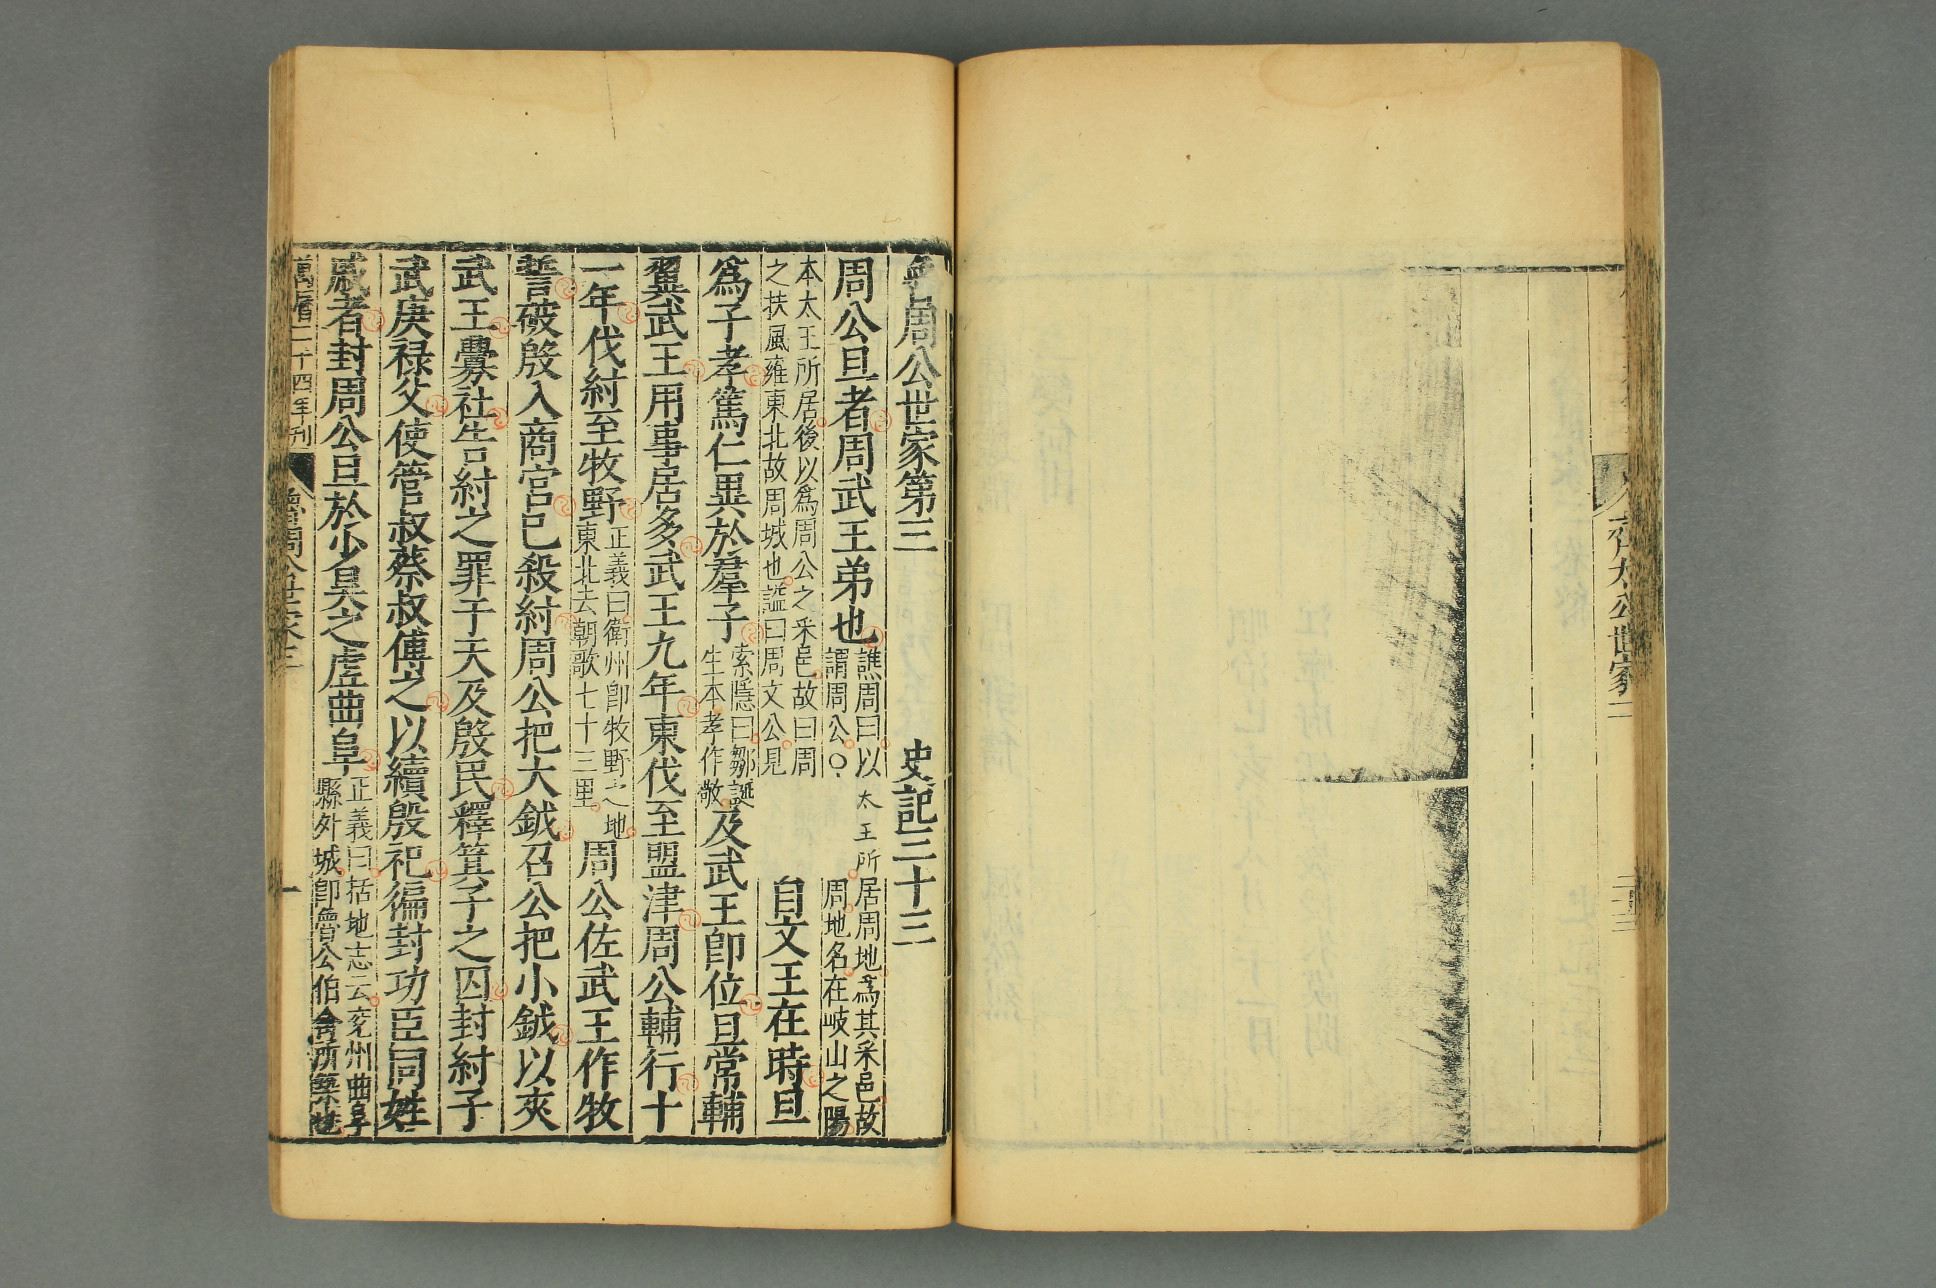 齊太公世家二
二十三
魯周公世家第三 史記三十三
周公旦者周武王弟也譙周曰以太王所居周地爲其采邑故謂周公○周地名在岐山之陽
本太王所居後以爲周公之采邑故曰周之扶風雍東北故周城也謚曰周文公見自文王在時旦
爲子孝篤仁異於羣子索隱曰鄒誕生本孝作敬及武王即位旦常輔
翼武王用事居多武王九年東伐至盟津周公輔行十
一年伐紂至牧野正義曰衛州即牧野之地東北去朝歌七十三里周公佐武王作牧
誓破殷入商宮已殺紂周公把大鉞召公把小鉞以夾
武王釁社告紂之罪于天及殷民釋箕子之囚封紂子
武庚禄父使管叔蔡叔傅之以續殷祀徧封功臣同姓
戚者封周公旦於少昊之虛曲阜正義曰括地志云兖州曲阜縣外城即魯公伯禽所築也
萬曆二十四年刊 魯周公世家三 一